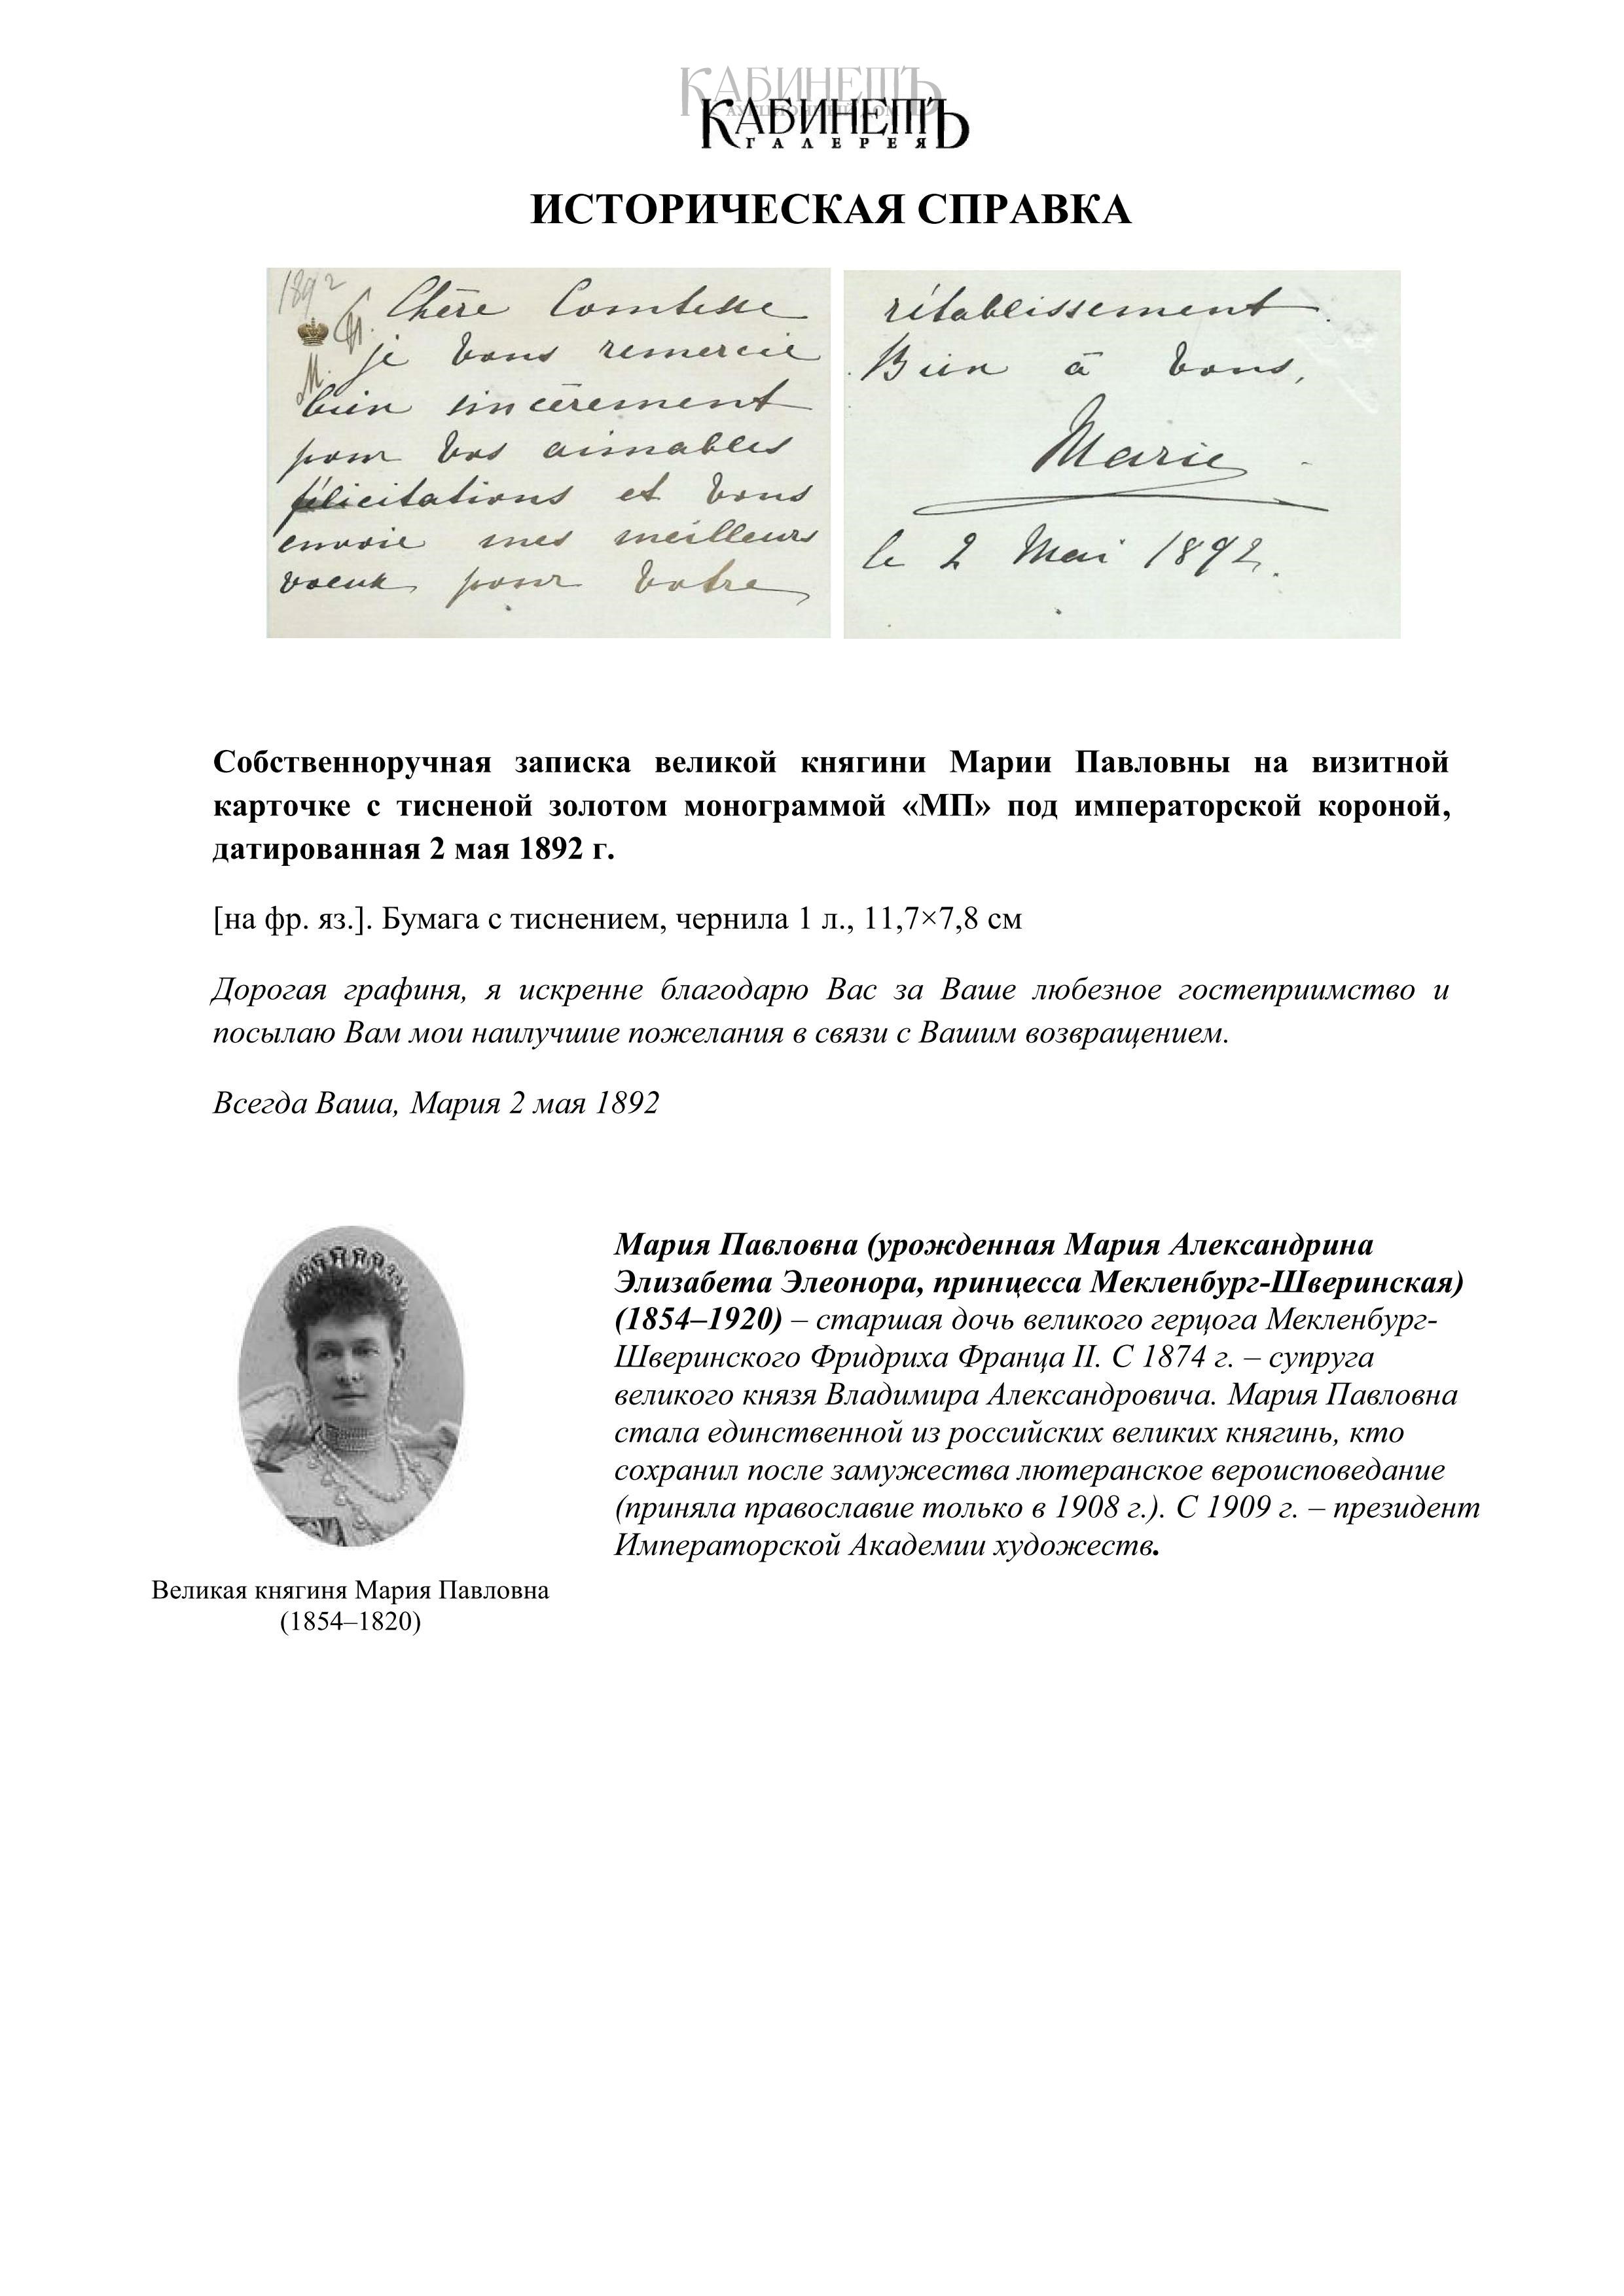 КАБИНЕТЪ
АУКЦИОННЫЙ ДОМ
КАБИНЕТЪ
ГАЛЕРЕЯ
ИСТОРИЧЕСКАЯ СПРАВКА
1892
Chère Comtesse
je vous remercie
bien sincèrement
pour vos aimables
félicitations et vous
envoie mes meilleurs
voeux pour votre
rétablissement.
Bien à vous,
Marie
le 2 Mai 1892.
Собственноручная записка великой княгини Марии Павловны на визитной
карточке с тисненой золотом монограммой «МП» под императорской короной,
датированная 2 мая 1892 г.
[на фр. яз.]. Бумага с тиснением, чернила 1 л., 11,7×7,8 см
Дорогая графиня, я искренне благодарю Вас за Ваше любезное гостеприимство и
посылаю Вам мои наилучшие пожелания в связи с Вашим возвращением.
Всегда Ваша, Мария 2 мая 1892
Мария Павловна (урожденная Мария Александрина
Элизабета Элеонора, принцесса Мекленбург-Шверинская)
(1854–1920) – старшая дочь великого герцога Мекленбург-
Шверинского Фридриха Франца II. С 1874 г. – супруга
великого князя Владимира Александровича. Мария Павловна
стала единственной из российских великих княгинь, кто
сохранил после замужества лютеранское вероисповедание
(приняла православие только в 1908 г.). С 1909 г. – президент
Императорской Академии художеств.
Великая княгиня Мария Павловна
(1854–1820)